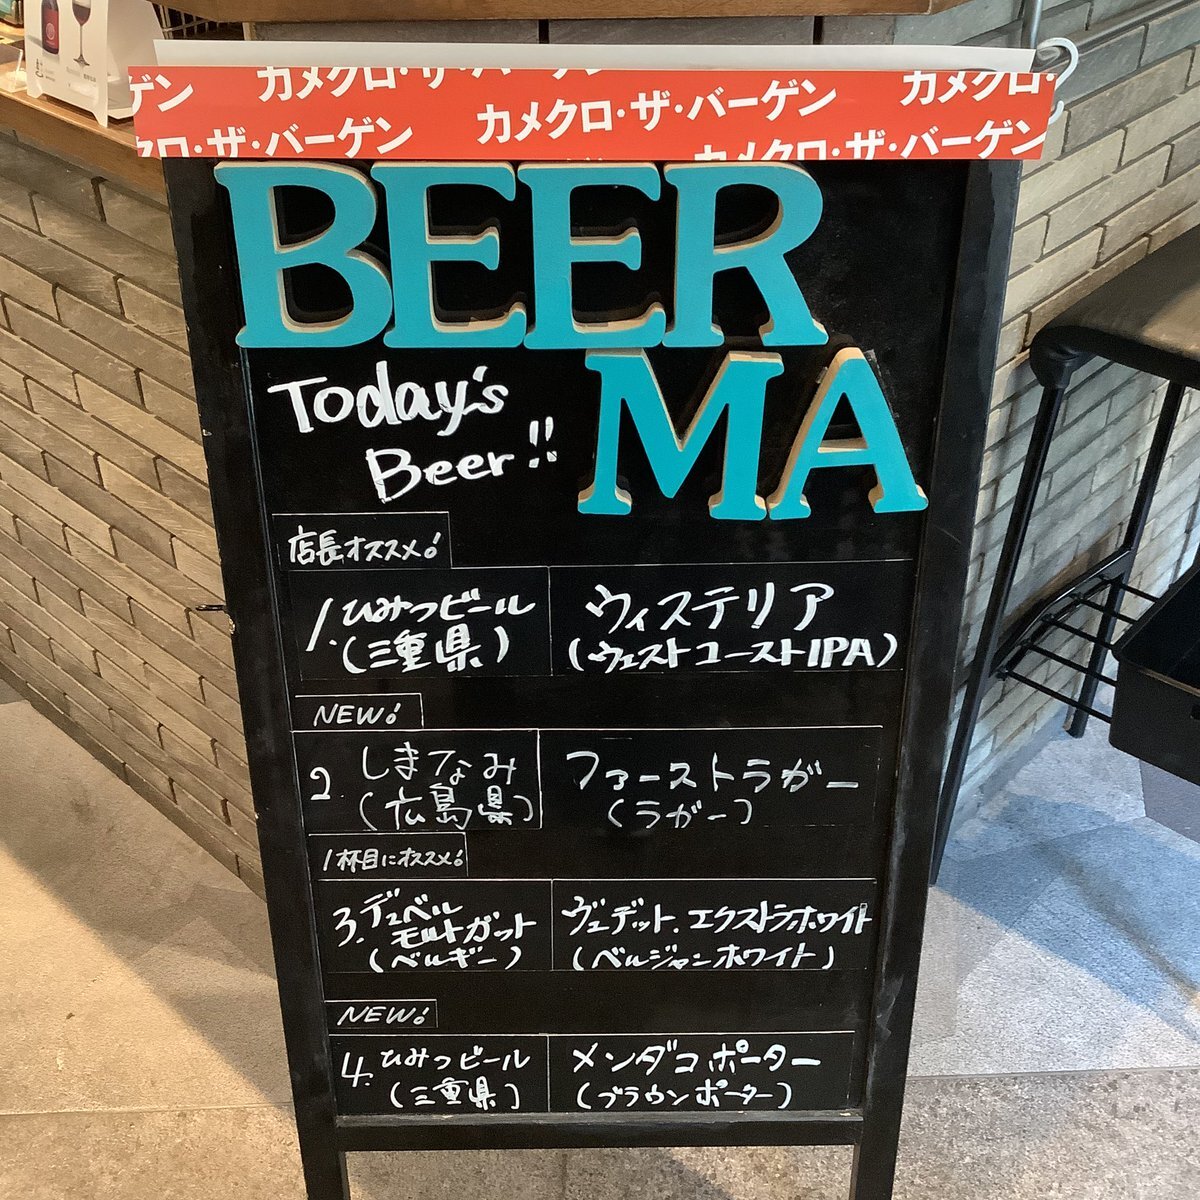 カメクロ・ザ・バーゲン
カメクロ・
ゲン
カメクロ・ザ・バーゲン
クロ・ザ・バーゲン
カメクロ・ザ・バーゲン
BEER
MA
Today's
Beer!!
店長オススメ!
1. ひみつビール
(三重県)
ウィステリア
(ウェストコーストIPA)
NEW!
2. しまなみ
(広島県)
ファーストラガー
(ラガー)
1杯目にオススメ!
3. デュベル
モルトガット
(ベルギー)
ヴェデット.エクストラホワイト
(ベルジャンホワイト)
NEW!
4. ひみつビール
(三重県)
メンダコポーター
(ブラウンポーター)